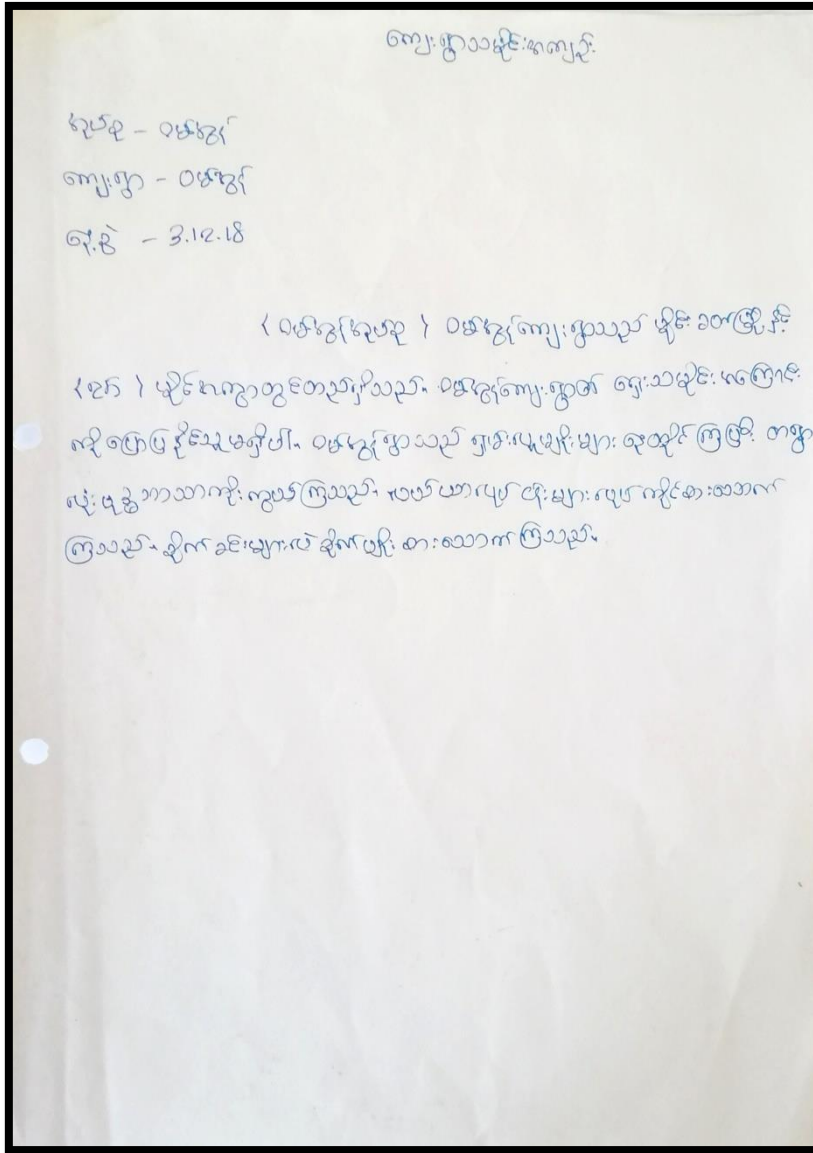 ကျေးရွာသမိုင်းအကျဉ်း
အုပ်စု - ဝမ်အွန်
ကျေးရွာ - ဝမ်အွန်
နေ့စွဲ - 3.12.18
( ဝမ်အွန်အုပ်စု ) ဝမ်အွန်ကျေးရွာသည် မိုင်း မြို့နှင့်
မိုင်အကွာတွင်တည်ရှိသည်။ ဝမ်အွန်ကျေးရွာ၏ ရှေးသမိုင်းအကြောင်း
ကို ပြောပြနိုင်သူမရှိပါ။ ဝမ်အွန်ရွာသည် ရှမ်းလူမျိုးများ နေထိုင်ကြပြီး တရွာ
လုံး ဗုဒ္ဓဘာသာကိုးကွယ်ကြသည်။ လယ်ယာလုပ်ငန်းများ လုပ်ကိုင်စားသောက်
ကြသည်။ စိုက်ခင်းများလဲ စိုက်ပျိုး စားသောက်ကြသည်။